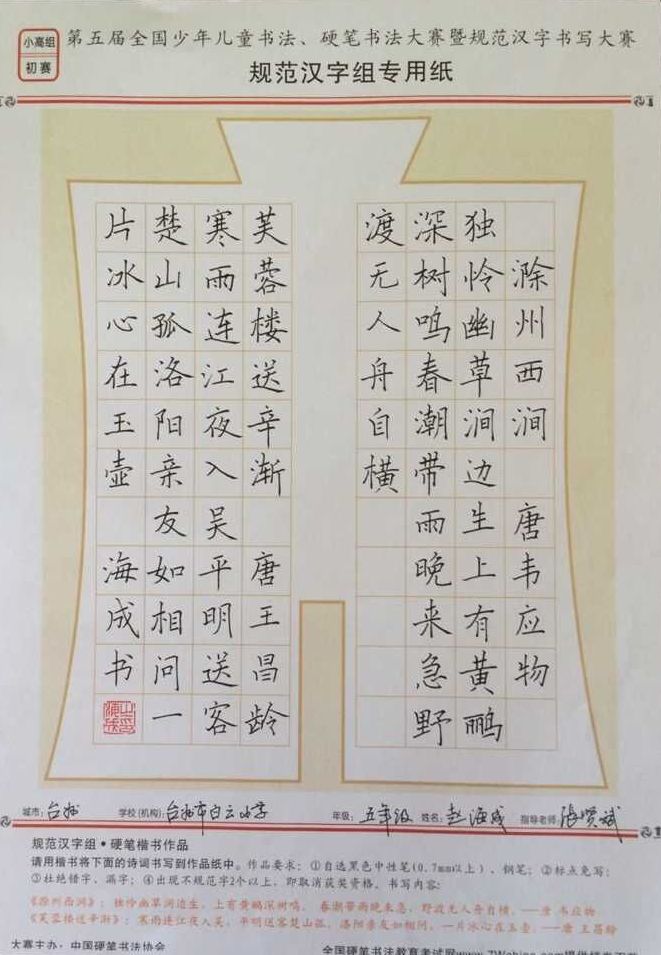 小高组
初赛
第五届全国少年儿童书法、硬笔书法大赛暨规范汉字书写大赛
规范汉字组专用纸
滁州西涧 唐韦应物
独怜幽草涧边生上有黄鹂
深树鸣春潮带雨晚来急野
渡无人舟自横
芙蓉楼送辛渐 唐王昌龄
寒雨连江夜入吴平明送客
楚山孤洛阳亲友如相问一
片冰心在玉壶 海成书
城市：台州 学校(机构)：台州市白云小学 年级：五年级 姓名：赵海成 指导老师：张贤斌
规范汉字组·硬笔楷书作品
请用楷书将下面的诗词书写到作品纸中。作品要求：①自选黑色中性笔(0.7mm以上)、钢笔；②标点免写；
③杜绝错字、漏字；④出现不规范字2个以上，即取消获奖资格。书写内容：
《滁州西涧》：独怜幽草涧边生，上有黄鹂深树鸣。 春潮带雨晚来急，野渡无人舟自横。——唐 韦应物
《芙蓉楼送辛渐》：寒雨连江夜入吴，平明送客楚山孤。洛阳亲友如相问，一片冰心在玉壶。——唐 王昌龄
大赛主办：中国硬笔书法协会
全国硬笔书法教育考试网www.